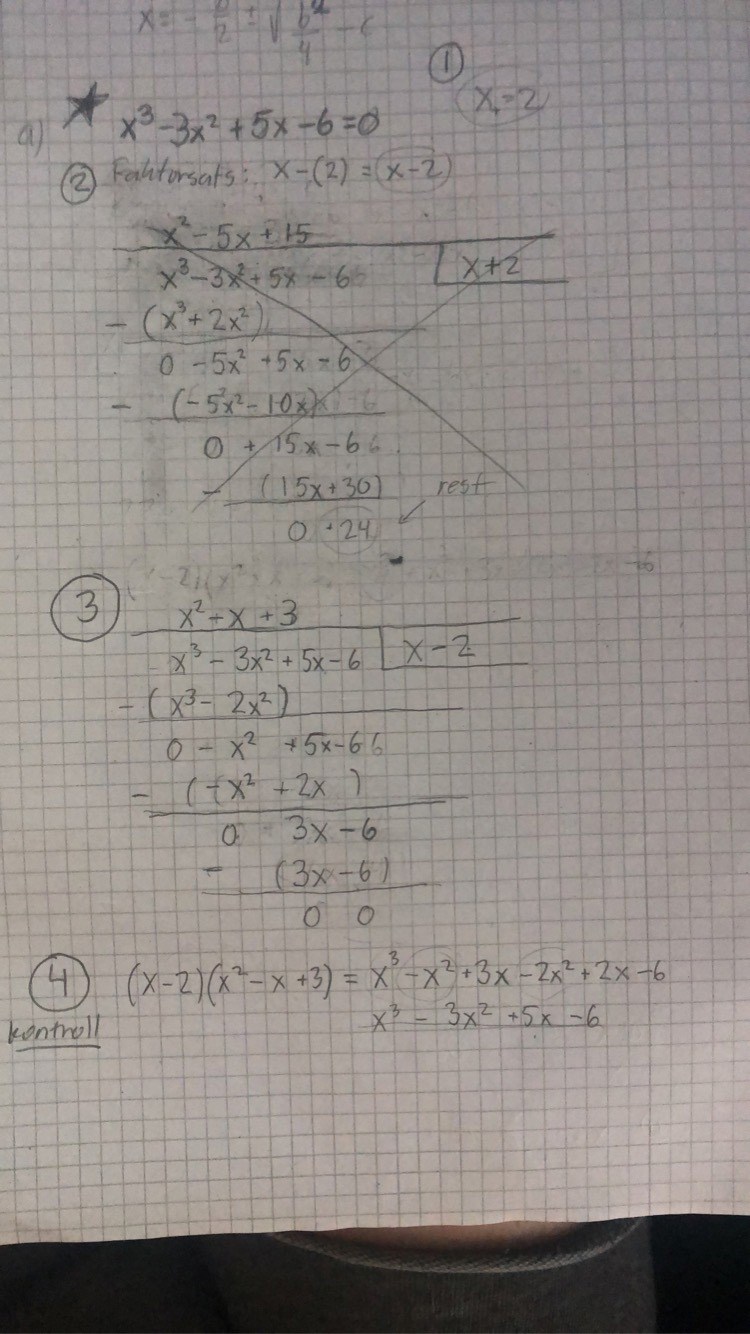 x = - b/2 ± √ b²/4 - c
①
x₁=2
a) ★ x³-3x²+5x-6=0
② Faktorsats: x-(2) = x-2
x²-5x+15
x³-3x²+5x-6 x+2
-(x³+2x²)
0 -5x²+5x-6
- (-5x²-10x)
0 + 15x-6
- (15x+30)
rest
0 -24
③
x²-x+3
x³-3x²+5x-6 x-2
-(x³-2x²)
0 - x² +5x-6
- (-x²+2x )
0 3x-6
- (3x-6)
0 0
④ (x-2)(x²-x+3) = x³-x²+3x-2x²+2x-6
kontroll x³-3x²+5x-6